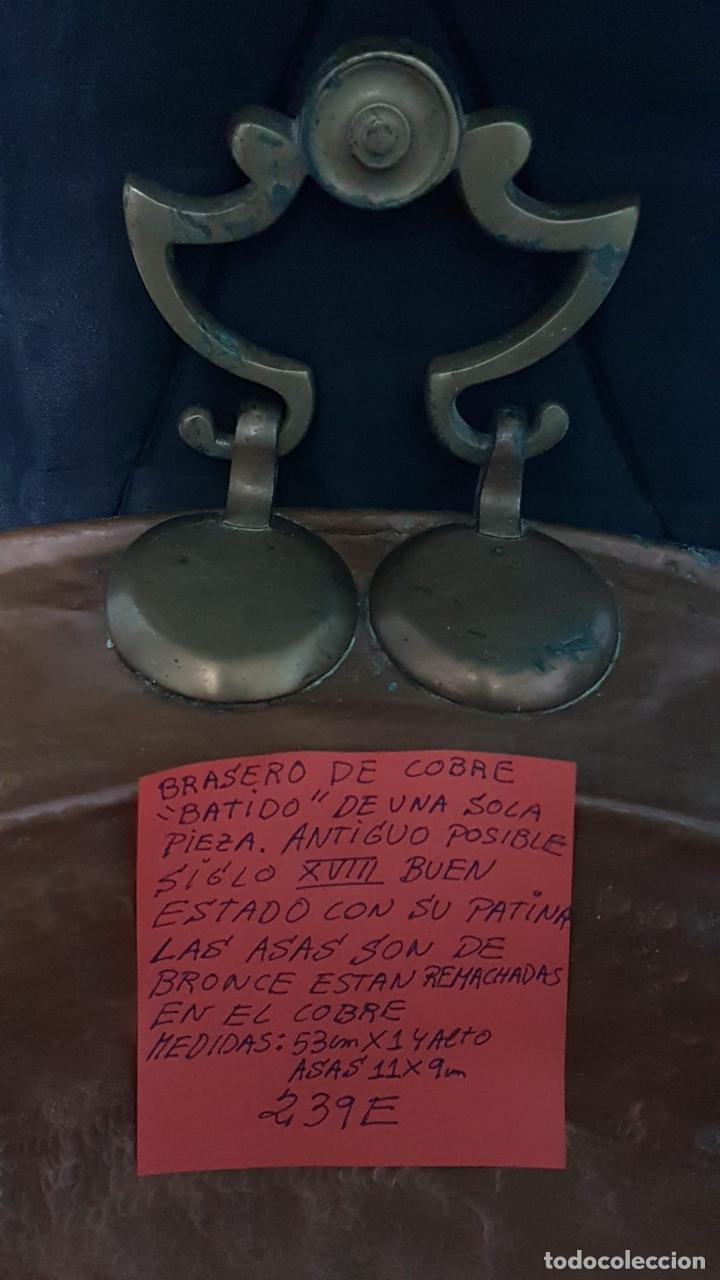 BRASERO DE COBRE
"BATIDO" DE UNA SOLA
PIEZA. ANTIGUO POSIBLE
SIGLO XVIII BUEN
ESTADO CON SU PATINA
LAS ASAS SON DE
BRONCE ESTAN REMACHADAS
EN EL COBRE
MEDIDAS: 53cm X 14 Alto
ASAS 11 X 9cm
239E
todocoleccion